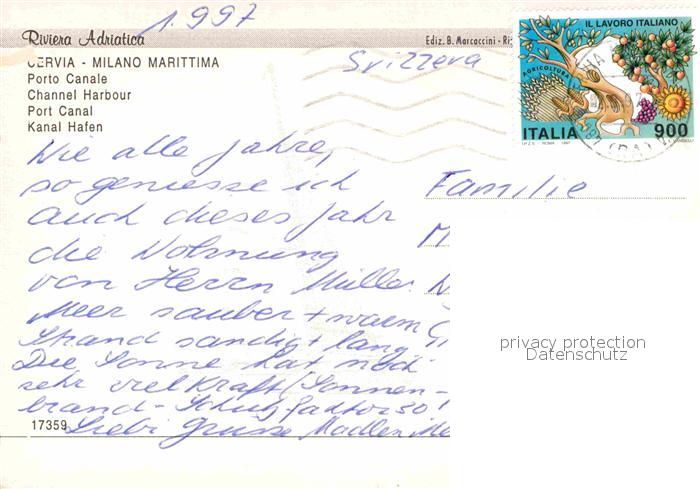 1.997
Riviera Adriatica
Ediz. B. Marcaccini - Ri
CERVIA - MILANO MARITTIMA
Porto Canale
Channel Harbour
Port Canal
Kanal Hafen
Svizzera
IL LAVORO ITALIANO
AGRICOLTURA
ITALIA 900
I.P.Z.S. ROMA 1997
Wie alle Jahre,
so geniesse ich
auch dieses Jahr
die Wohnung
von Herrn Müller.
Meer sauber + warm
Strand sandig + lang
Die Sonne hat noch
sehr viel Kraft / Sonnen-
brand - Schutzfaktor 30!
Liebi Grüsse Madlen
Familie
privacy protection
Datenschutz
17359